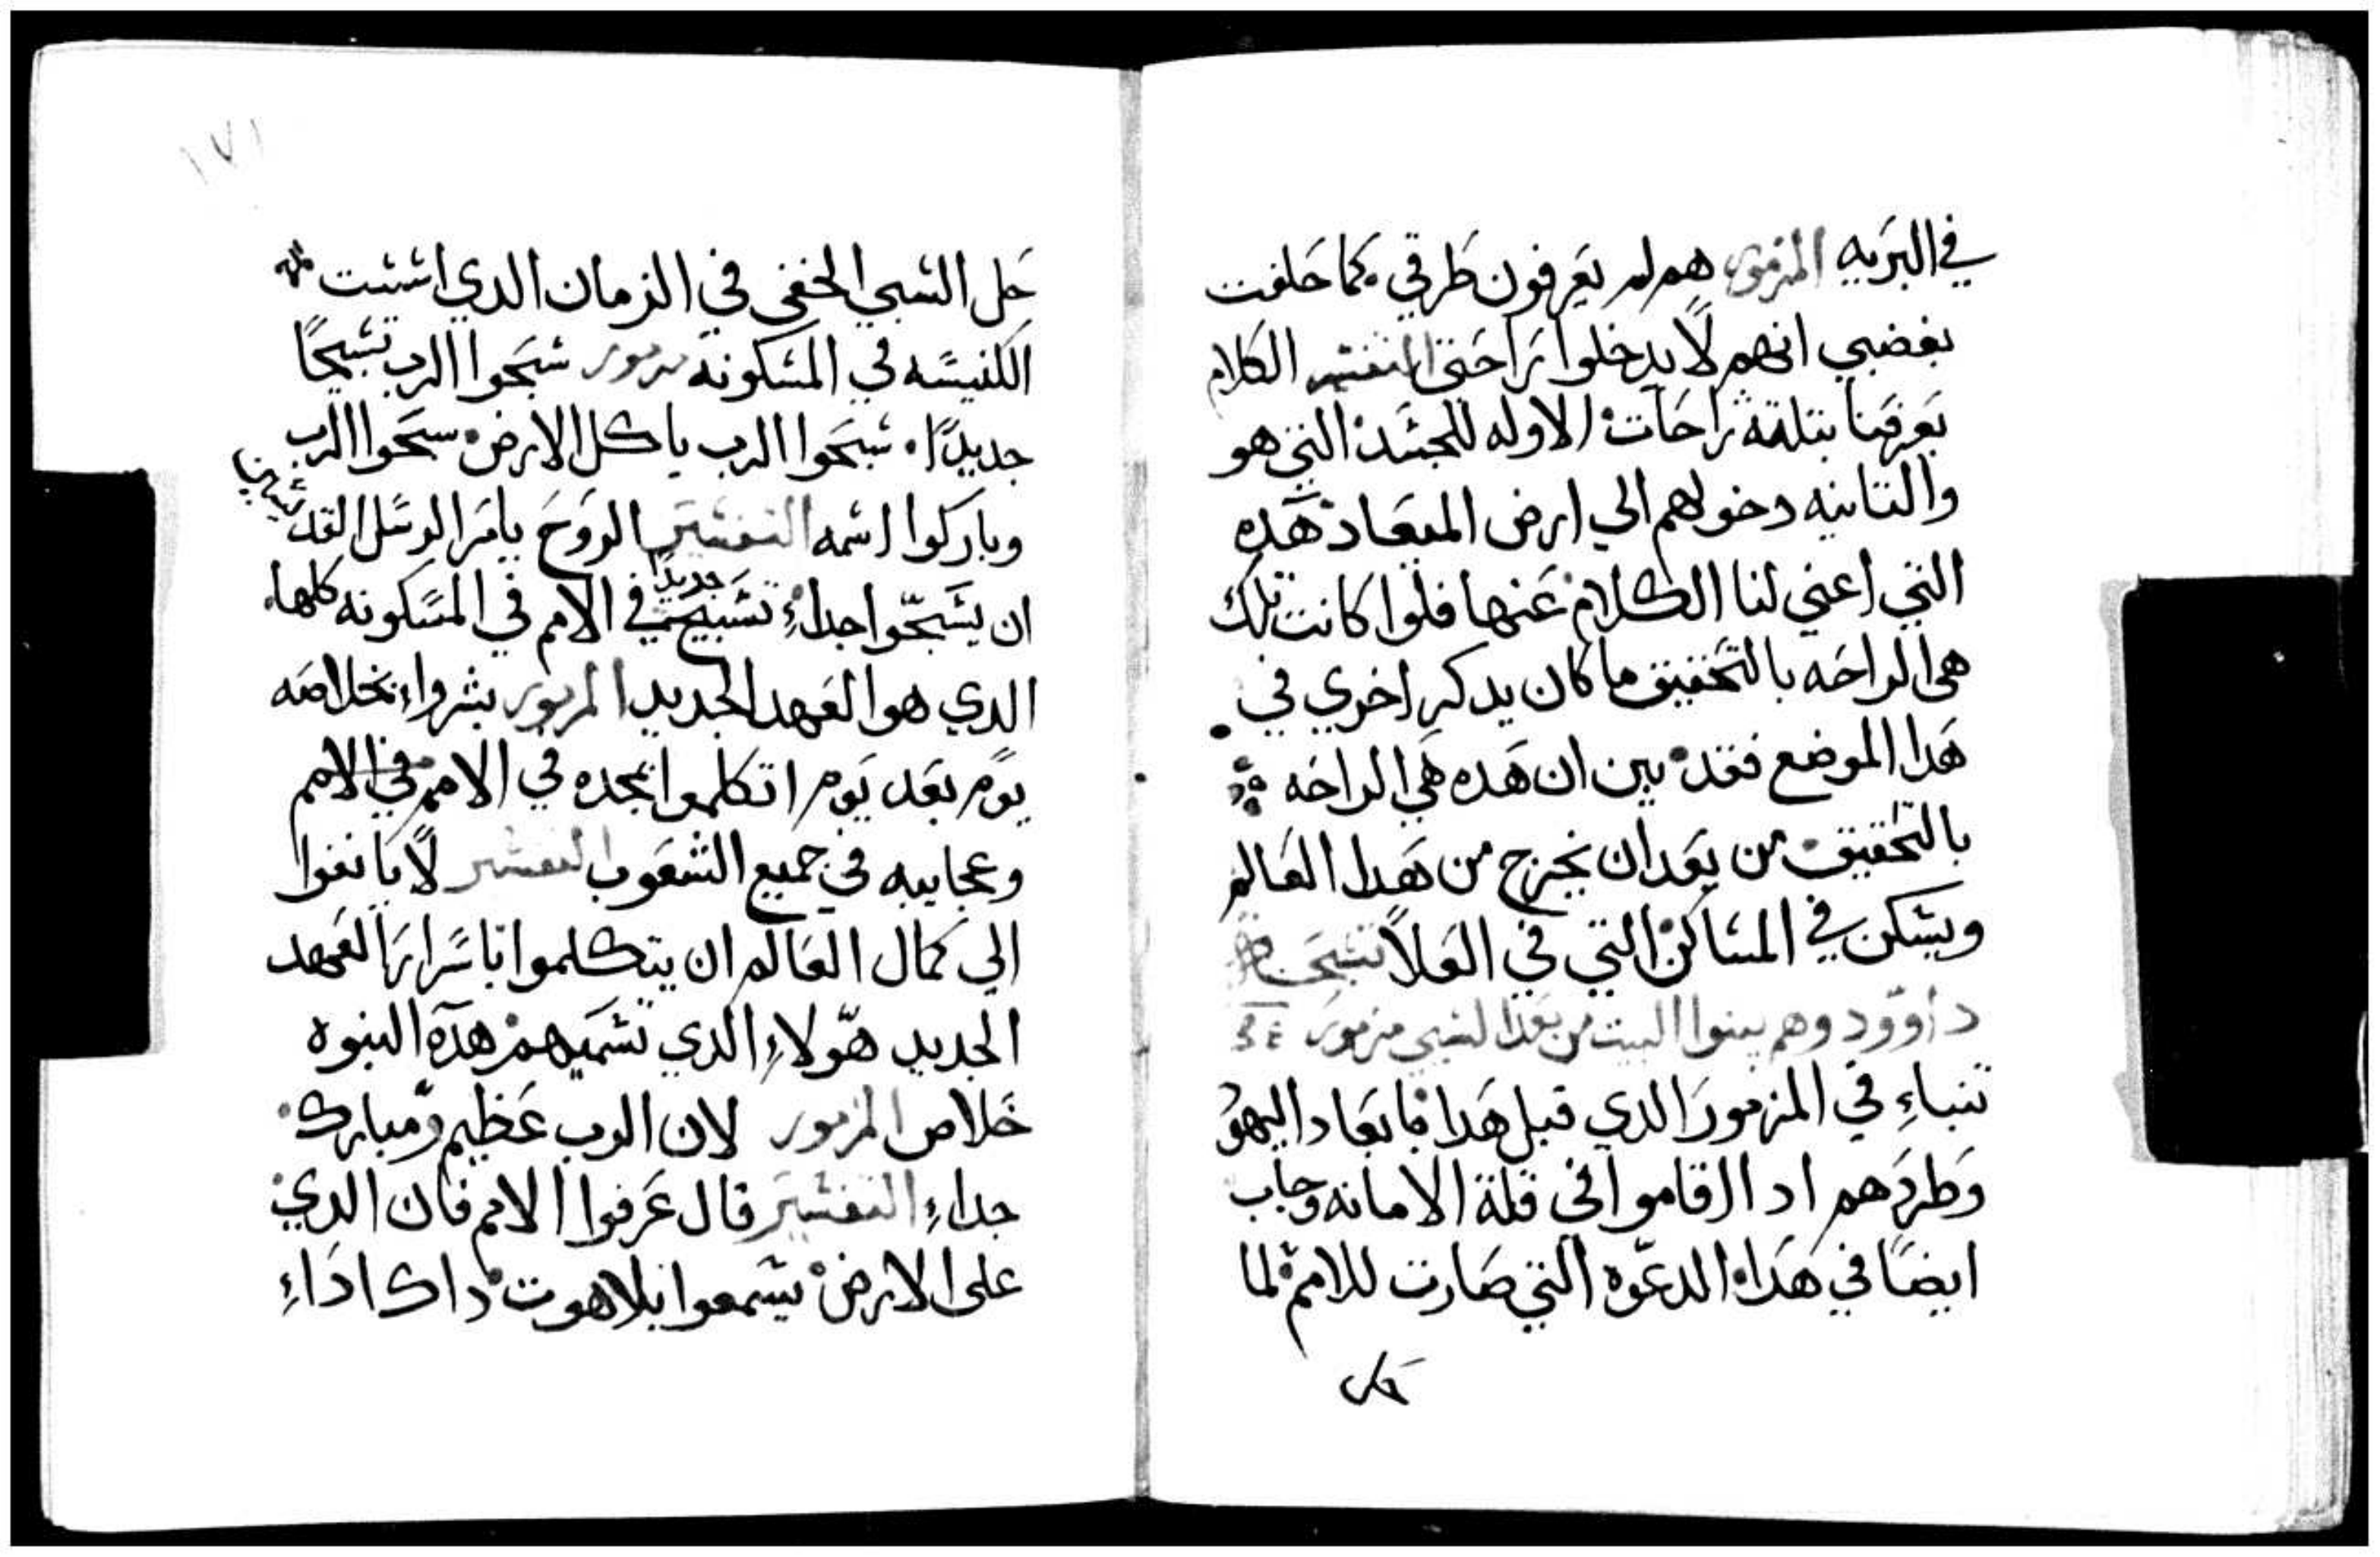 في البريه المزمور هم لم يعرفون طرقي . كما حلفت
بغضبي انهم لا يدخلوا راحتي التفسير الكلام
يعرفنا بتلتة راحات الاوله للجسد التي هو
والتانيه دخولهم الي ارض الميعاد هده
التي اعني لنا الكلام عنها فلوا كانت تلك
هي الراحه بالتحقيق ما كان يدكر اخري في
هدا الموضع فقد بين ان هده هي الراحه
بالتحقيق من بعد ان يخرج من هدا العالم
ويسكن في المساكن التي في العلا تسبحة
داوود وهم يبنوا البيت من بعد السبي مزمور
تنباء في المزمور الدي قبل هدا بابعاد اليهود
وطردهم اد اقاموا في قلة الامانه وجاب
ايضا في هدا الدعوه التي صارت للامم لما
حل
حل السبي الخفي في الزمان الدي اسست
الكنيسه في المسكونه مزمور سبحوا الرب تسبيحا
جديدا . سبحوا الرب يا كل الارض سبحوا الرب
وباركوا اسمه التفسير الروح يامر الرسل القديسين
ان يسبحوا جداء تسبيح جديد في الامم في المسكونه كلها .
الدي هوا العهد الجديد المزمور بشرواء بخلاصه
يوم بعد يوم اتكلموا بمجده في الامم في الامم
وعجايبه في جميع الشعوب التفسير لا يانفوا
الي كمال العالم ان يتكلموا باسرار العهد
الجديد هولاء الدي تسميهم هده النبوه
خلاص المزمور لان الرب عظيم ومبارك
جداء التفسير قال عرفوا الامم فان الدي
علي الارض يسمعوا بلاهوت داك اداء
١٧١